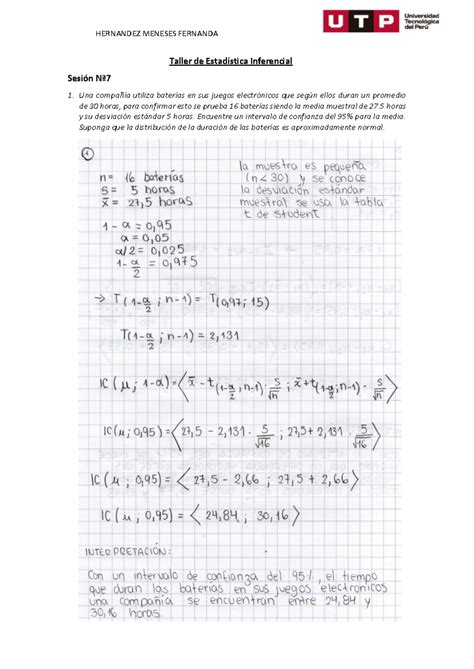 HERNANDEZ MENESES FERNANDA
UTP
Universidad
Tecnológica
del Perú
Taller de Estadística Inferencial
Sesión N°7
1. Una compañía utiliza baterías en sus juegos electrónicos que según ellos duran un promedio
de 30 horas, para confirmar esto se prueba 16 baterías siendo la media muestral de 27.5 horas
y su desviación estándar 5 horas. Encuentre un intervalo de confianza del 95% para la media.
Suponga que la distribución de la duración de las baterías es aproximadamente normal.
1
n= 16 baterías
S= 5 horas
x̄ = 27,5 horas
la muestra es pequeña
(n<30) y se conoce
la desviación estándar
muestral se usa la tabla
t de student
1-α = 0,95
α = 0,05
α/2 = 0,025
1-α/2 = 0,975
→ T(1-α/2 ; n-1) = T(0,97; 15)
T(1-α/2 ; n-1) = 2,131
IC(μ; 1-α) = ⟨x̄ - t(1-α/2; n-1) · S/√n ; x̄ + t(1-α/2; n-1) · S/√n⟩
IC(μ; 0,95) = ⟨27,5 - 2,131 · 5/√16 ; 27,5 + 2,131 · 5/√16⟩
IC(μ; 0,95) = ⟨27,5 - 2,66 ; 27,5 + 2,66⟩
IC(μ; 0,95) = ⟨24,84 ; 30,16⟩
INTERPRETACIÓN:
Con un intervalo de confianza del 95%, el tiempo
que duran las baterías en sus juegos electronicos
una compañía se encuentran entre 24,84 y
30,16 horas.